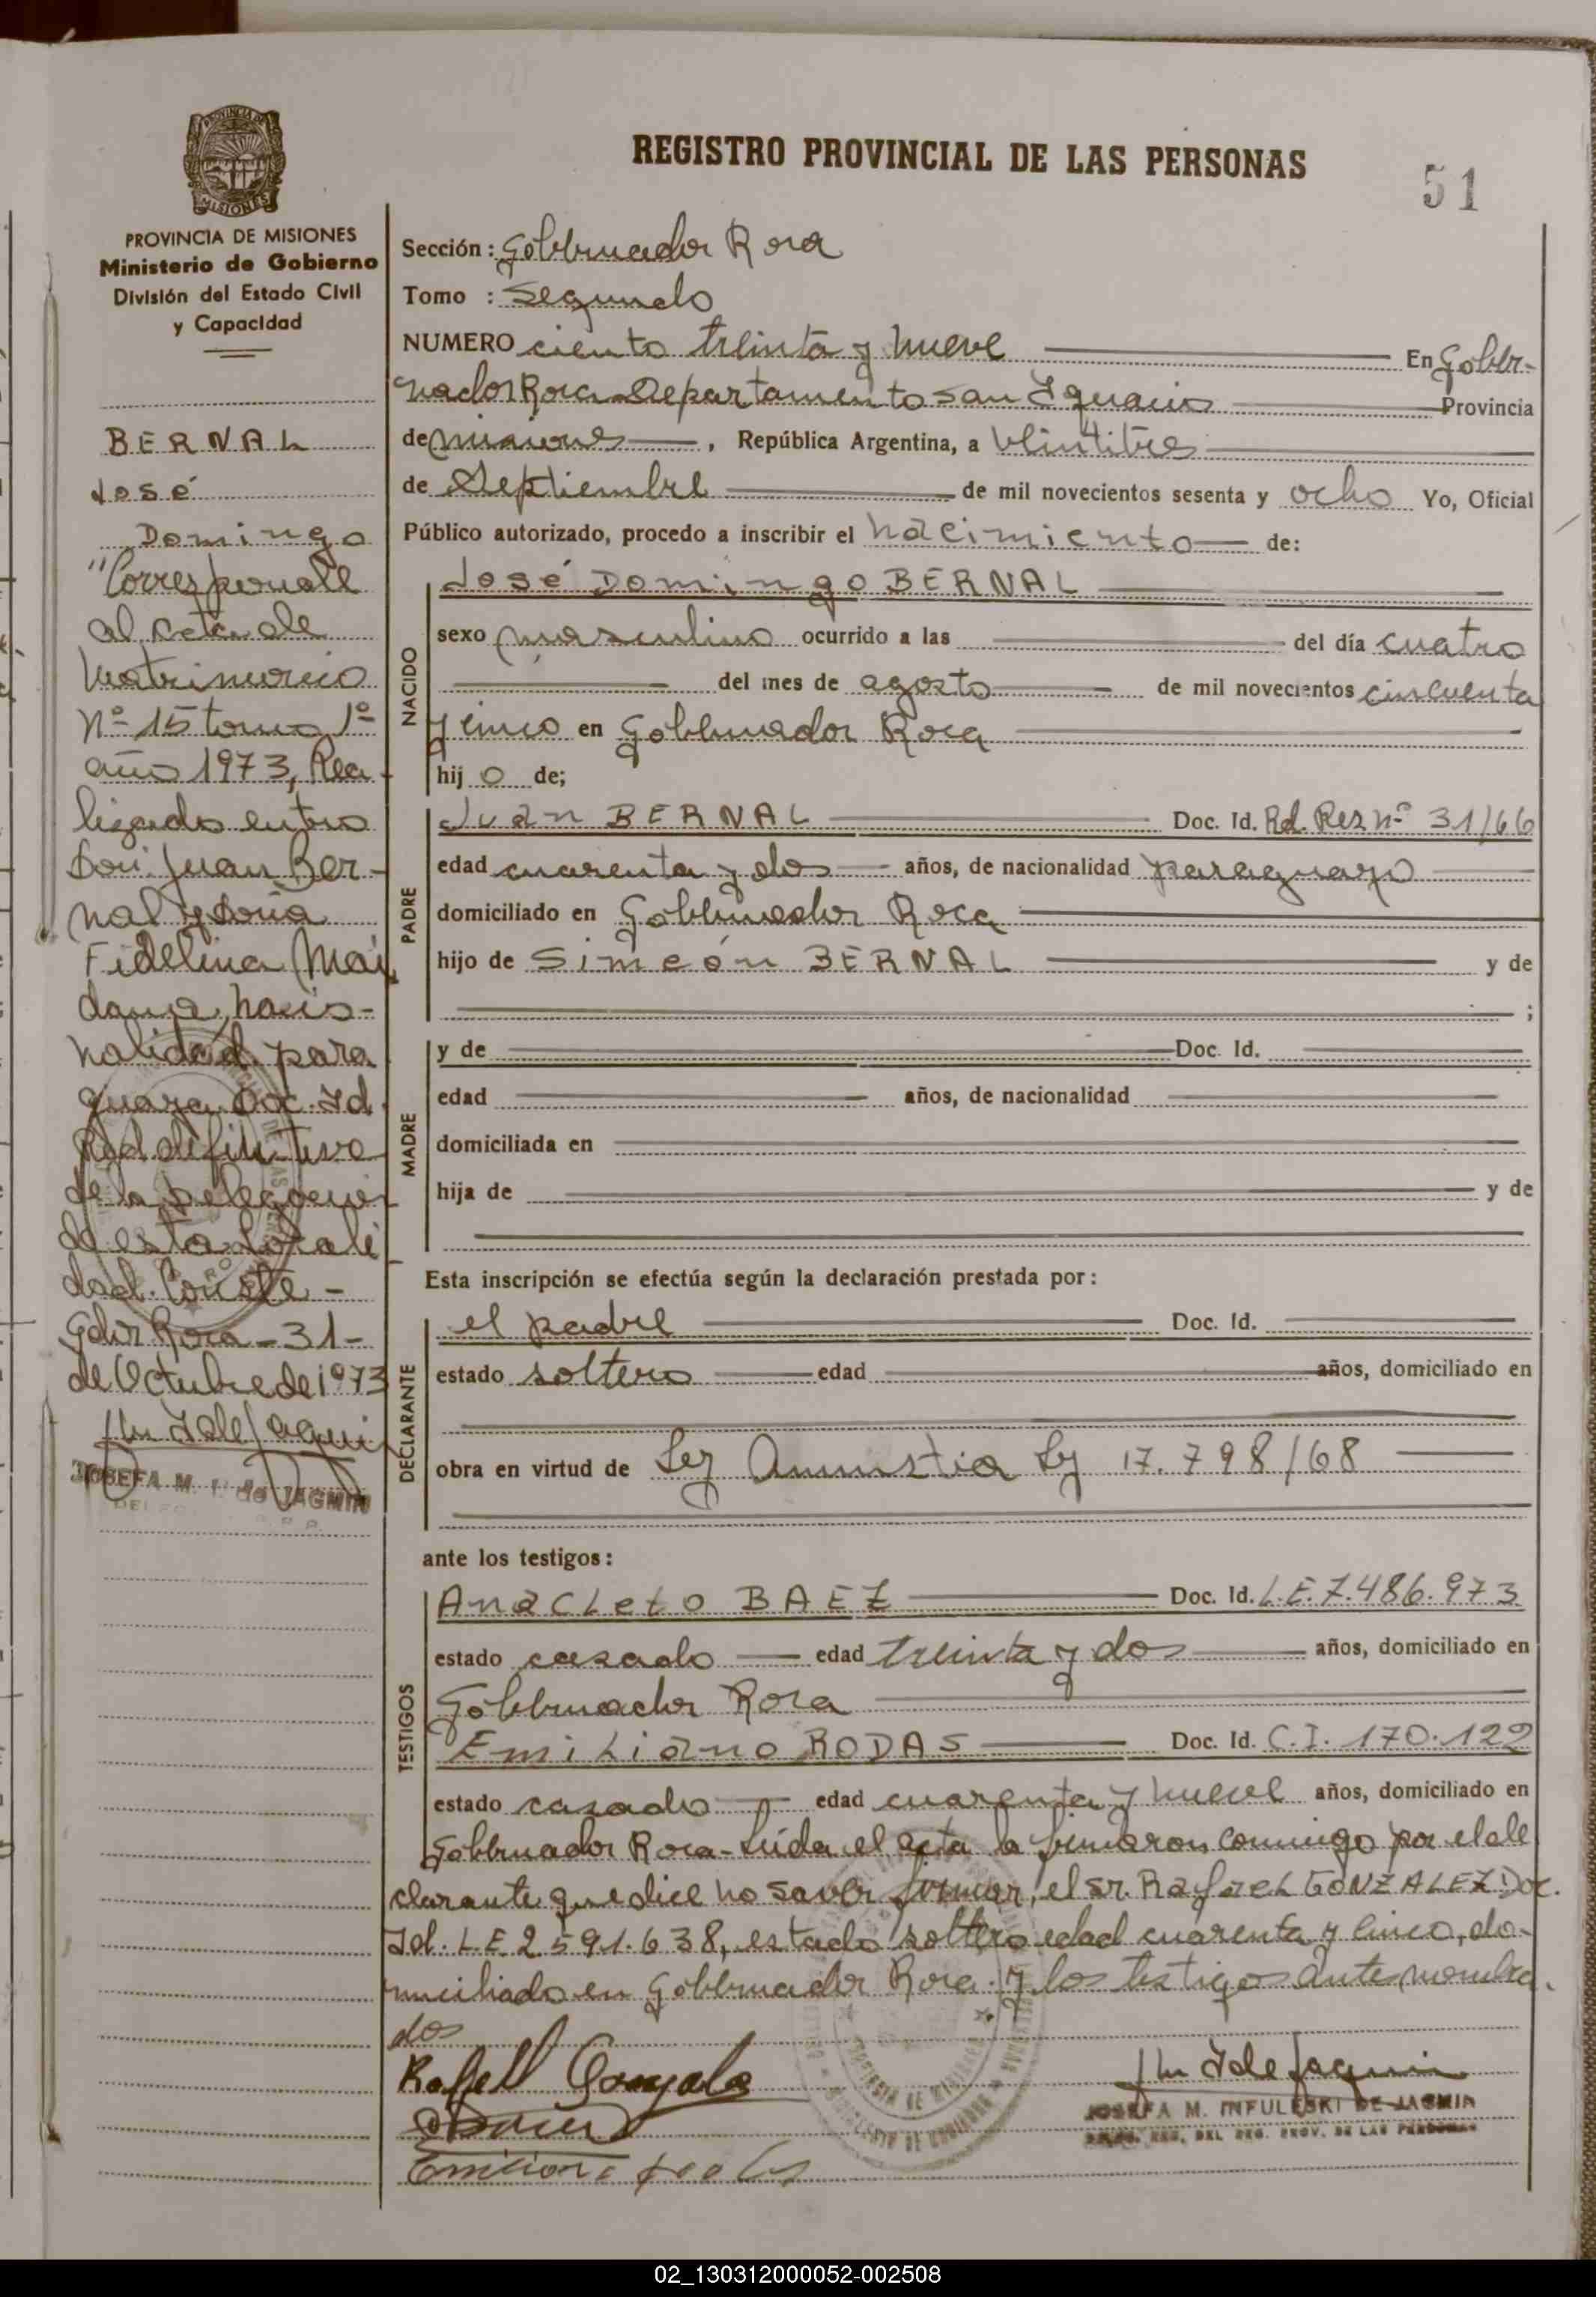 PROVINCIA DE MISIONES
PROVINCIA DE MISIONES
Ministerio de Gobierno
División del Estado Civil
y Capacidad
BERNAL
José
Domingo
"Corresponde
al acta de
Matrimonio
Nº 15 tomo 1º
año 1973, Rea-
lizado entre
Don Juan Ber-
nal y doña
Fidelina Mai
dana, nacio-
nalidad para
guaya Doc. Id.
Rad. definitiva
de la Delegación
de esta locali
dad. Conste -
Gdor Roca - 31 -
de Octubre de 1973
JOSEFA M. I. de JAGMIN
REGISTRO PROVINCIAL DE LAS PERSONAS
51
Sección: Gobernador Roca
Tomo : Segundo
NUMERO ciento treinta y nueve En Gober-
nador Roca Departamento San Ignacio Provincia
de Misiones, República Argentina, a veintitres
de Septiembre de mil novecientos sesenta y ocho Yo, Oficial
Público autorizado, procedo a inscribir el nacimiento de:
NACIDO
José Domingo BERNAL
sexo masculino ocurrido a las del día cuatro
del mes de agosto de mil novecientos cincuenta
y cinco en Gobernador Roca
hij o de;
PADRE
Juan BERNAL Doc. Id. Rd. Rez nº 31/66
edad cuarenta y dos años, de nacionalidad paraguayo
domiciliado en Gobernador Roca
hijo de Simeón BERNAL y de
;
MADRE
y de Doc. Id.
edad años, de nacionalidad
domiciliada en
hija de y de
Esta inscripción se efectúa según la declaración prestada por:
DECLARANTE
el padre Doc. Id.
estado soltero edad años, domiciliado en
obra en virtud de Ley Amnistia Ly 17.798/68
ante los testigos:
TESTIGOS
Anacleto BAEZ Doc. Id. L.E. 7.486.973
estado casado edad treinta y dos años, domiciliado en
Gobernador Roca
Emiliano RODAS Doc. Id. C.I. 170.122
estado casado edad cuarenta y nueve años, domiciliado en
Gobernador Roca - Leida el acta la firmaron conmigo por el de
clarante que dice no saver firmar, el sr. Rafael GONZALEZ Doc.
Id. L.E 2.591.638, estado soltero edad cuarenta y cinco, do-
miciliado en Gobernador Roca. y los testigos antes nombra.
dos
Rafell Gonzales
JOSEFA M. INFULESKI DE JAGMIN
DELEG. REG. DEL REG. PROV. DE LAS PERSONAS
02_130312000052-002508